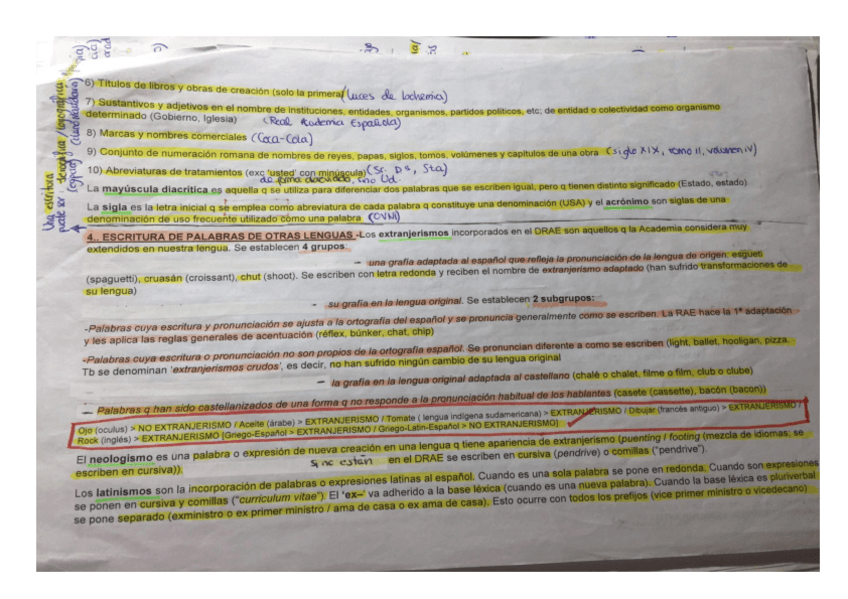 6) Títulos de libros y obras de creación (solo la primera) (Luces de bohemia)
7) Sustantivos y adjetivos en el nombre de instituciones, entidades, organismos, partidos políticos, etc; de entidad o colectividad como organismo
determinado (Gobierno, Iglesia) (Real Academia Española)
8) Marcas y nombres comerciales (Coca-Cola)
9) Conjunto de numeración romana de nombres de reyes, papas, siglos, tomos, volúmenes y capítulos de una obra (siglo XIX, tomo II, volumen IV)
10) Abreviaturas de tratamientos (exc 'usted' con minúscula) (Sr. Ds, Sta)
sino Ud.
La mayúscula diacrítica es aquella q se utiliza para diferenciar dos palabras que se escriben igual, pero q tienen distinto significado (Estado, estado)
La sigla es la letra inicial q se emplea como abreviatura de cada palabra q constituye una denominación (USA) y el acrónimo son siglas de una
denominación de uso frecuente utilizado como una palabra (OVNI)
Una escritura puede ser
4.. ESCRITURA DE PALABRAS DE OTRAS LENGUAS -Los extranjerismos incorporados en el DRAE son aquellos q la Academia considera muy
extendidos en nuestra lengua. Se establecen 4 grupos:
– una grafía adaptada al español que refleja la pronunciación de la lengua de origen: esgueti
(spaguetti), cruasán (croissant), chut (shoot). Se escriben con letra redonda y reciben el nombre de extranjerismo adaptado (han sufrido transformaciones de
su lengua)
- su grafía en la lengua original. Se establecen 2 subgrupos:
-Palabras cuya escritura y pronunciación se ajusta a la ortografía del español y se pronuncia generalmente como se escriben. La RAE hace la 1ª adaptación
y les aplica las reglas generales de acentuación (réflex, búnker, chat, chip)
-Palabras cuya escritura o pronunciación no son propios de la ortografía español. Se pronuncian diferente a como se escriben (light, ballet, hooligan, pizza.
Tb se denominan 'extranjerismos crudos', es decir, no han sufrido ningún cambio de su lengua original
– la grafía en la lengua original adaptada al castellano (chalé o chalet, filme o film, club o clube)
– Palabras q han sido castellanizados de una forma q no responde a la pronunciación habitual de los hablantes (casete (cassette), bacón (bacon))
Ojo (oculus) > NO EXTRANJERISMO / Aceite (árabe) > EXTRANJERISMO / Tomate ( lengua indígena sudamericana) > EXTRANJERISMO / Dibujar (francés antiguo) > EXTRANJERISMO /
Rock (inglés) > EXTRANJERISMO [Griego-Español > EXTRANJERISMO / Griego-Latín-Español > NO EXTRANJERISMO]
El neologismo es una palabra o expresión de nueva creación en una lengua q tiene apariencia de extranjerismo (puenting / footing (mezcla de idiomas; se
escriben en cursiva)). Si no están en el DRAE se escriben en cursiva (pendrive) o comillas ("pendrive")
Los latinismos son la incorporación de palabras o expresiones latinas al español. Cuando es una sola palabra se pone en redonda. Cuando son expresiones
se ponen en cursiva y comillas ("curriculum vitae"). El 'ex–' va adherido a la base léxica (cuando es una nueva palabra). Cuando la base léxica es pluriverbal
se pone separado (exministro o ex primer ministro / ama de casa o ex ama de casa). Esto ocurre con todos los prefijos (vice primer ministro o vicedecano)